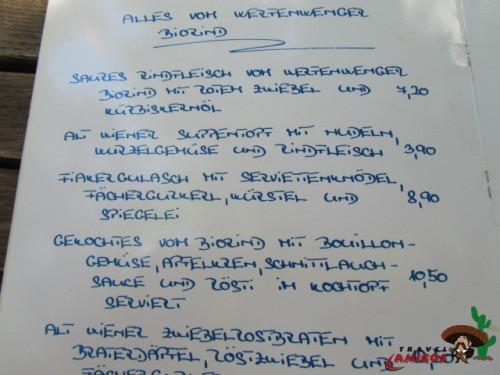 ALLES VOM WERTENWENGER
BIORIND
SAURES RINDFLEISCH VOM WERTENWENGER
BIORIND MIT ROTEM ZWIEBEL UND 7,20
KÜRBISKERNÖL
ALT WIENER SUPPENTOPF MIT NUDELN,
WURZELGEMÜSE UND RINDFLEISCH 3,90
FIAKERGULASCH MIT SERVIETTENKNÖDEL,
FÄCHERGURKERL, WÜRSTEL UND 8,90
SPIEGELEI
GEKOCHTES VOM BIORIND MIT BOUILLON-
GEMÜSE, APFELKREN, SCHNITTLAUCH-
SAUCE UND RÖSTI IM KOCHTOPF 10,50
SERVIERT
ALT WIENER ZWIEBELROSTBRATEN MIT
BRATERDÄPFEL, RÖSTZWIEBEL UND
FÄCHERGURKERL
TRAVEL
AMIGOS